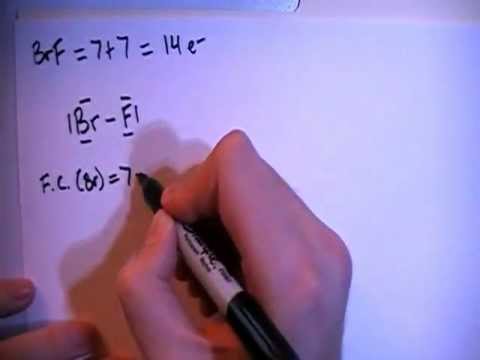 BrF = 7+7 = 14 e-
|Br - F|
F.C. (Br) = 7